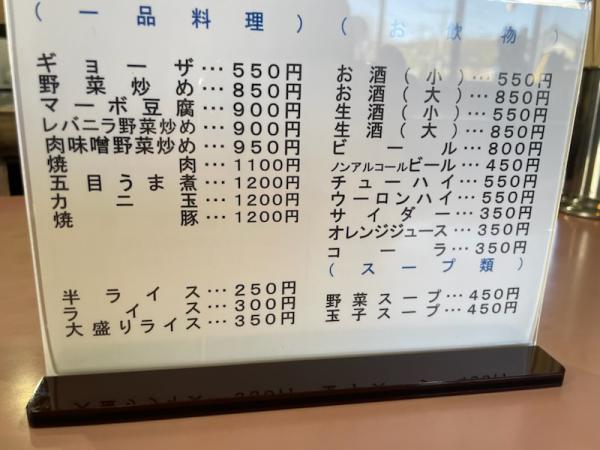 (一品料理)
ギョーザ…550円
野菜炒め…850円
マーボ豆腐…900円
レバニラ野菜炒め…900円
肉味噌野菜炒め…950円
焼肉…1100円
五目うま煮…1200円
カニ玉…1200円
焼豚…1200円
半ライス…250円
ライス…300円
大盛りライス…350円
(お飲物)
お酒(小)…550円
お酒(大)…850円
生酒(小)…550円
生酒(大)…850円
ビール…800円
ノンアルコールビール…450円
チューハイ…550円
ウーロンハイ…550円
サイダー…350円
オレンジジュース…350円
コーラ…350円
(スープ類)
野菜スープ…450円
玉子スープ…450円